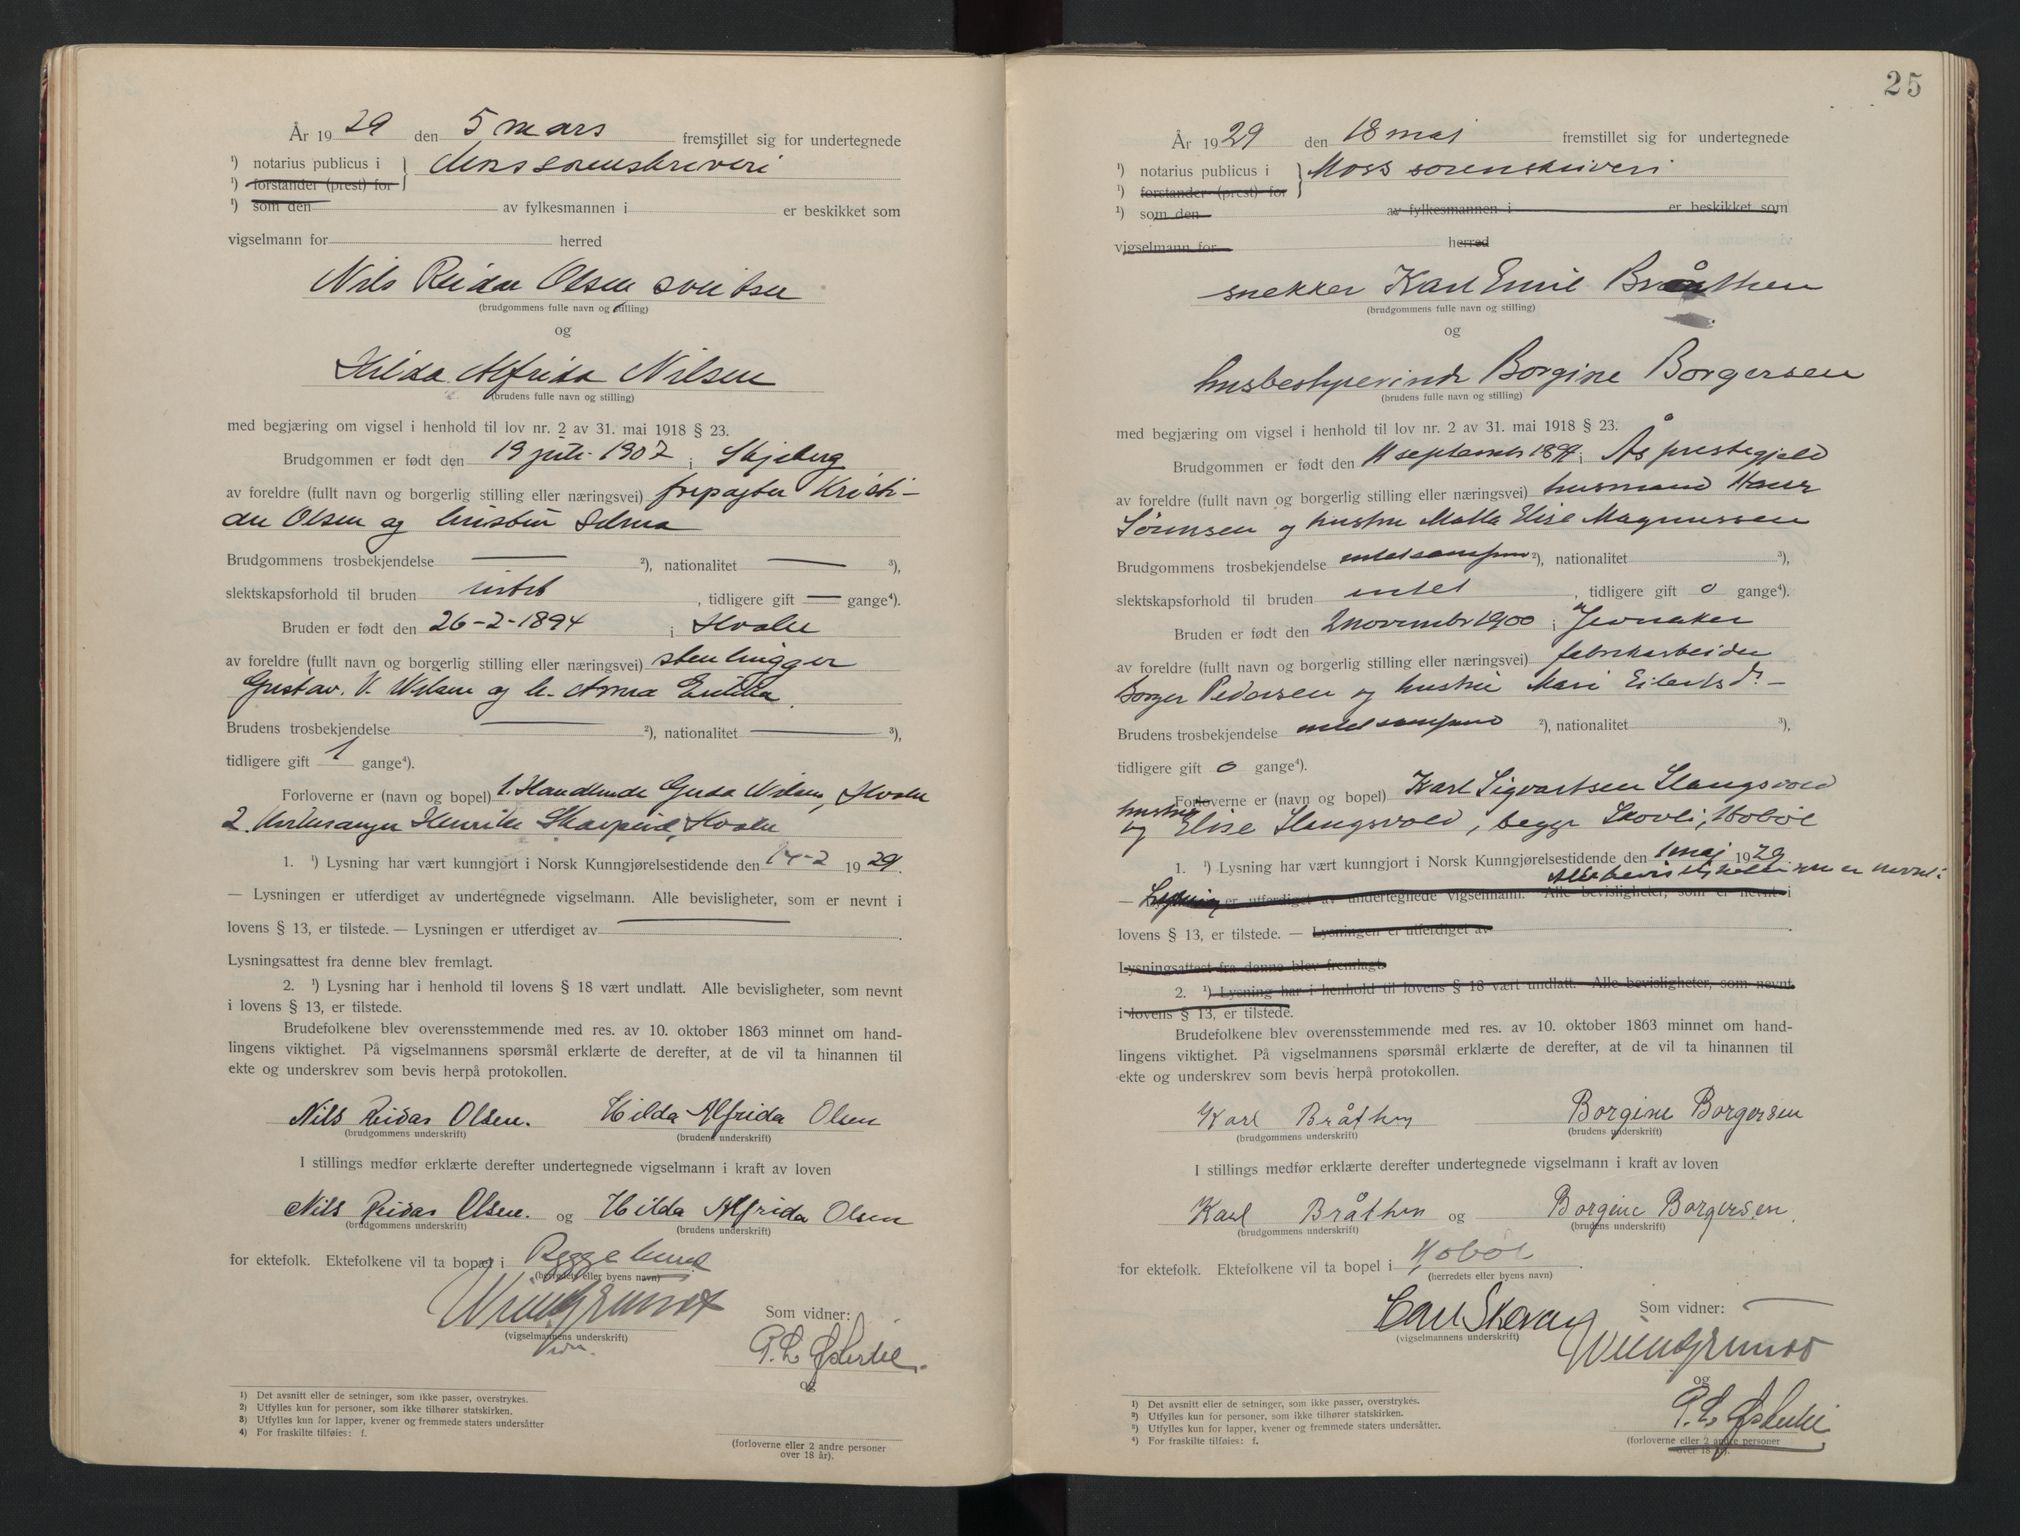 År 1929 den 5 mars fremstillet sig for undertegnede
¹) notarius publicus i } Moss sorenskriveri
¹) forstander (prest) for
¹) som den av fylkesmannen i er beskikket som
vigselmann for herred
Nils Reidar Olsen sveitser
(brudgommens fulle navn og stilling)
og
Hilda Alfrida Nilsen
(brudens fulle navn og stilling)
med begjæring om vigsel i henhold til lov nr. 2 av 31. mai 1918 § 23.
Brudgommen er født den 19 juli 1907 i Skjeberg
av foreldre (fullt navn og borgerlig stilling eller næringsvei) forpagter Kristi-
an Olsen og hustru Selma
Brudgommens trosbekjendelse — ²), nationalitet — ³),
slektskapsforhold til bruden intet, tidligere gift — gange⁴).
Bruden er født den 26-2-1894 i Hvaler
av foreldre (fullt navn og borgerlig stilling eller næringsvei) stenhugger
Gustav. V. Nilsen og h. Anna Emilia.
Brudens trosbekjendelse — ²), nationalitet — ³),
tidligere gift 1 gange⁴).
Forloverne er (navn og bopel) 1. Handlende Gerda Nilsen, Hvaler
2. Henrik Hvaler
1. ¹) Lysning har vært kunngjort i Norsk Kunngjørelsestidende den 14-2 1929.
— Lysningen er utferdiget av undertegnede vigselmann. Alle bevisligheter, som er nevnt i
lovens § 13, er tilstede. — Lysningen er utferdiget av —
Lysningsattest fra denne blev fremlagt.
2. ¹) Lysning har i henhold til lovens § 18 vært undlatt. Alle bevisligheter, som nevnt
i lovens § 13, er tilstede.
Brudefolkene blev overensstemmende med res. av 10. oktober 1863 minnet om hand-
lingens viktighet. På vigselmannens spørsmål erklærte de derefter, at de vil ta hinannen til
ekte og underskrev som bevis herpå protokollen.
Nils Reidar Olsen. Hilda Alfrida Olsen
(brudgommens underskrift) (brudens underskrift)
I stillings medfør erklærte derefter undertegnede vigselmann i kraft av loven
Nils Reidar Olsen. og Hilda Alfrida Olsen
(brudgommens underskrift) (brudens underskrift)
for ektefolk. Ektefolkene vil ta bopæl i Rygge
(herredets eller byens navn)
Som vidner:
(vigselmannens underskrift)
P. L.
og
1) Det avsnitt eller de setninger, som ikke passer, overstrykes.
2) Utfylles kun for personer, som ikke tilhører statskirken.
3) Utfylles kun for lapper, kvener og fremmede staters undersåtter
4) For fraskilte tilføies: f.
(forloverne eller 2 andre personer
over 18 år).
25
År 1929 den 18 mai fremstillet sig for undertegnede
¹) notarius publicus i } Moss sorenskriveri
¹) forstander (prest) for
¹) som den av fylkesmannen i er beskikket som
vigselmann for herred
snekker Karl Emil Bråthen
(brudgommens fulle navn og stilling)
og
husbestyrerinde Borgine Borgersen
(brudens fulle navn og stilling)
med begjæring om vigsel i henhold til lov nr. 2 av 31. mai 1918 § 23.
Brudgommen er født den 11 september i Ås prestegjeld
av foreldre (fullt navn og borgerlig stilling eller næringsvei) husmand Hans
Sørensen og hustru Elise Magnussen
Brudgommens trosbekjendelse ²), nationalitet ³),
slektskapsforhold til bruden intet, tidligere gift 0 gange⁴).
Bruden er født den 2 november 1900 i Jevnaker
av foreldre (fullt navn og borgerlig stilling eller næringsvei) fabrikarbeider
Borger Pedersen og hustru Mari Eilertsd.
Brudens trosbekjendelse ²), nationalitet ³),
tidligere gift 0 gange⁴).
Forloverne er (navn og bopel) Karl Sigvartsen Slangsvold
og hustru Elise Slangsvold, begge Skovli, Hobøl
1. ¹) Lysning har vært kunngjort i Norsk Kunngjørelsestidende den 1 mai 1929.
Alle bevisligheter som er nevnt i
— Lysningen er utferdiget av undertegnede vigselmann. Alle bevisligheter, som er nevnt i
lovens § 13, er tilstede. — Lysningen er utferdiget av
Lysningsattest fra denne blev fremlagt.
2. ¹) Lysning har i henhold til lovens § 18 vært undlatt. Alle bevisligheter, som nevnt
i lovens § 13, er tilstede.
Brudefolkene blev overensstemmende med res. av 10. oktober 1863 minnet om hand-
lingens viktighet. På vigselmannens spørsmål erklærte de derefter, at de vil ta hinannen til
ekte og underskrev som bevis herpå protokollen.
Karl Bråthen Borgine Borgersen
(brudgommens underskrift) (brudens underskrift)
I stillings medfør erklærte derefter undertegnede vigselmann i kraft av loven
Karl Bråthen og Borgine Borgersen.
(brudgommens underskrift) (brudens underskrift)
for ektefolk. Ektefolkene vil ta bopel i Hobøl.
(herredets eller byens navn)
Carl Som vidner: —
(vigselmannens underskrift)
og
P. L.
1) Det avsnitt eller de setninger, som ikke passer, overstrykes.
2) Utfylles kun for personer, som ikke tilhører statskirken.
3) Utfylles kun for lapper, kvener og fremmede staters undersåtter.
4) For fraskilte tilføies: f.
(forloverne eller 2 andre personer
over 18 år).